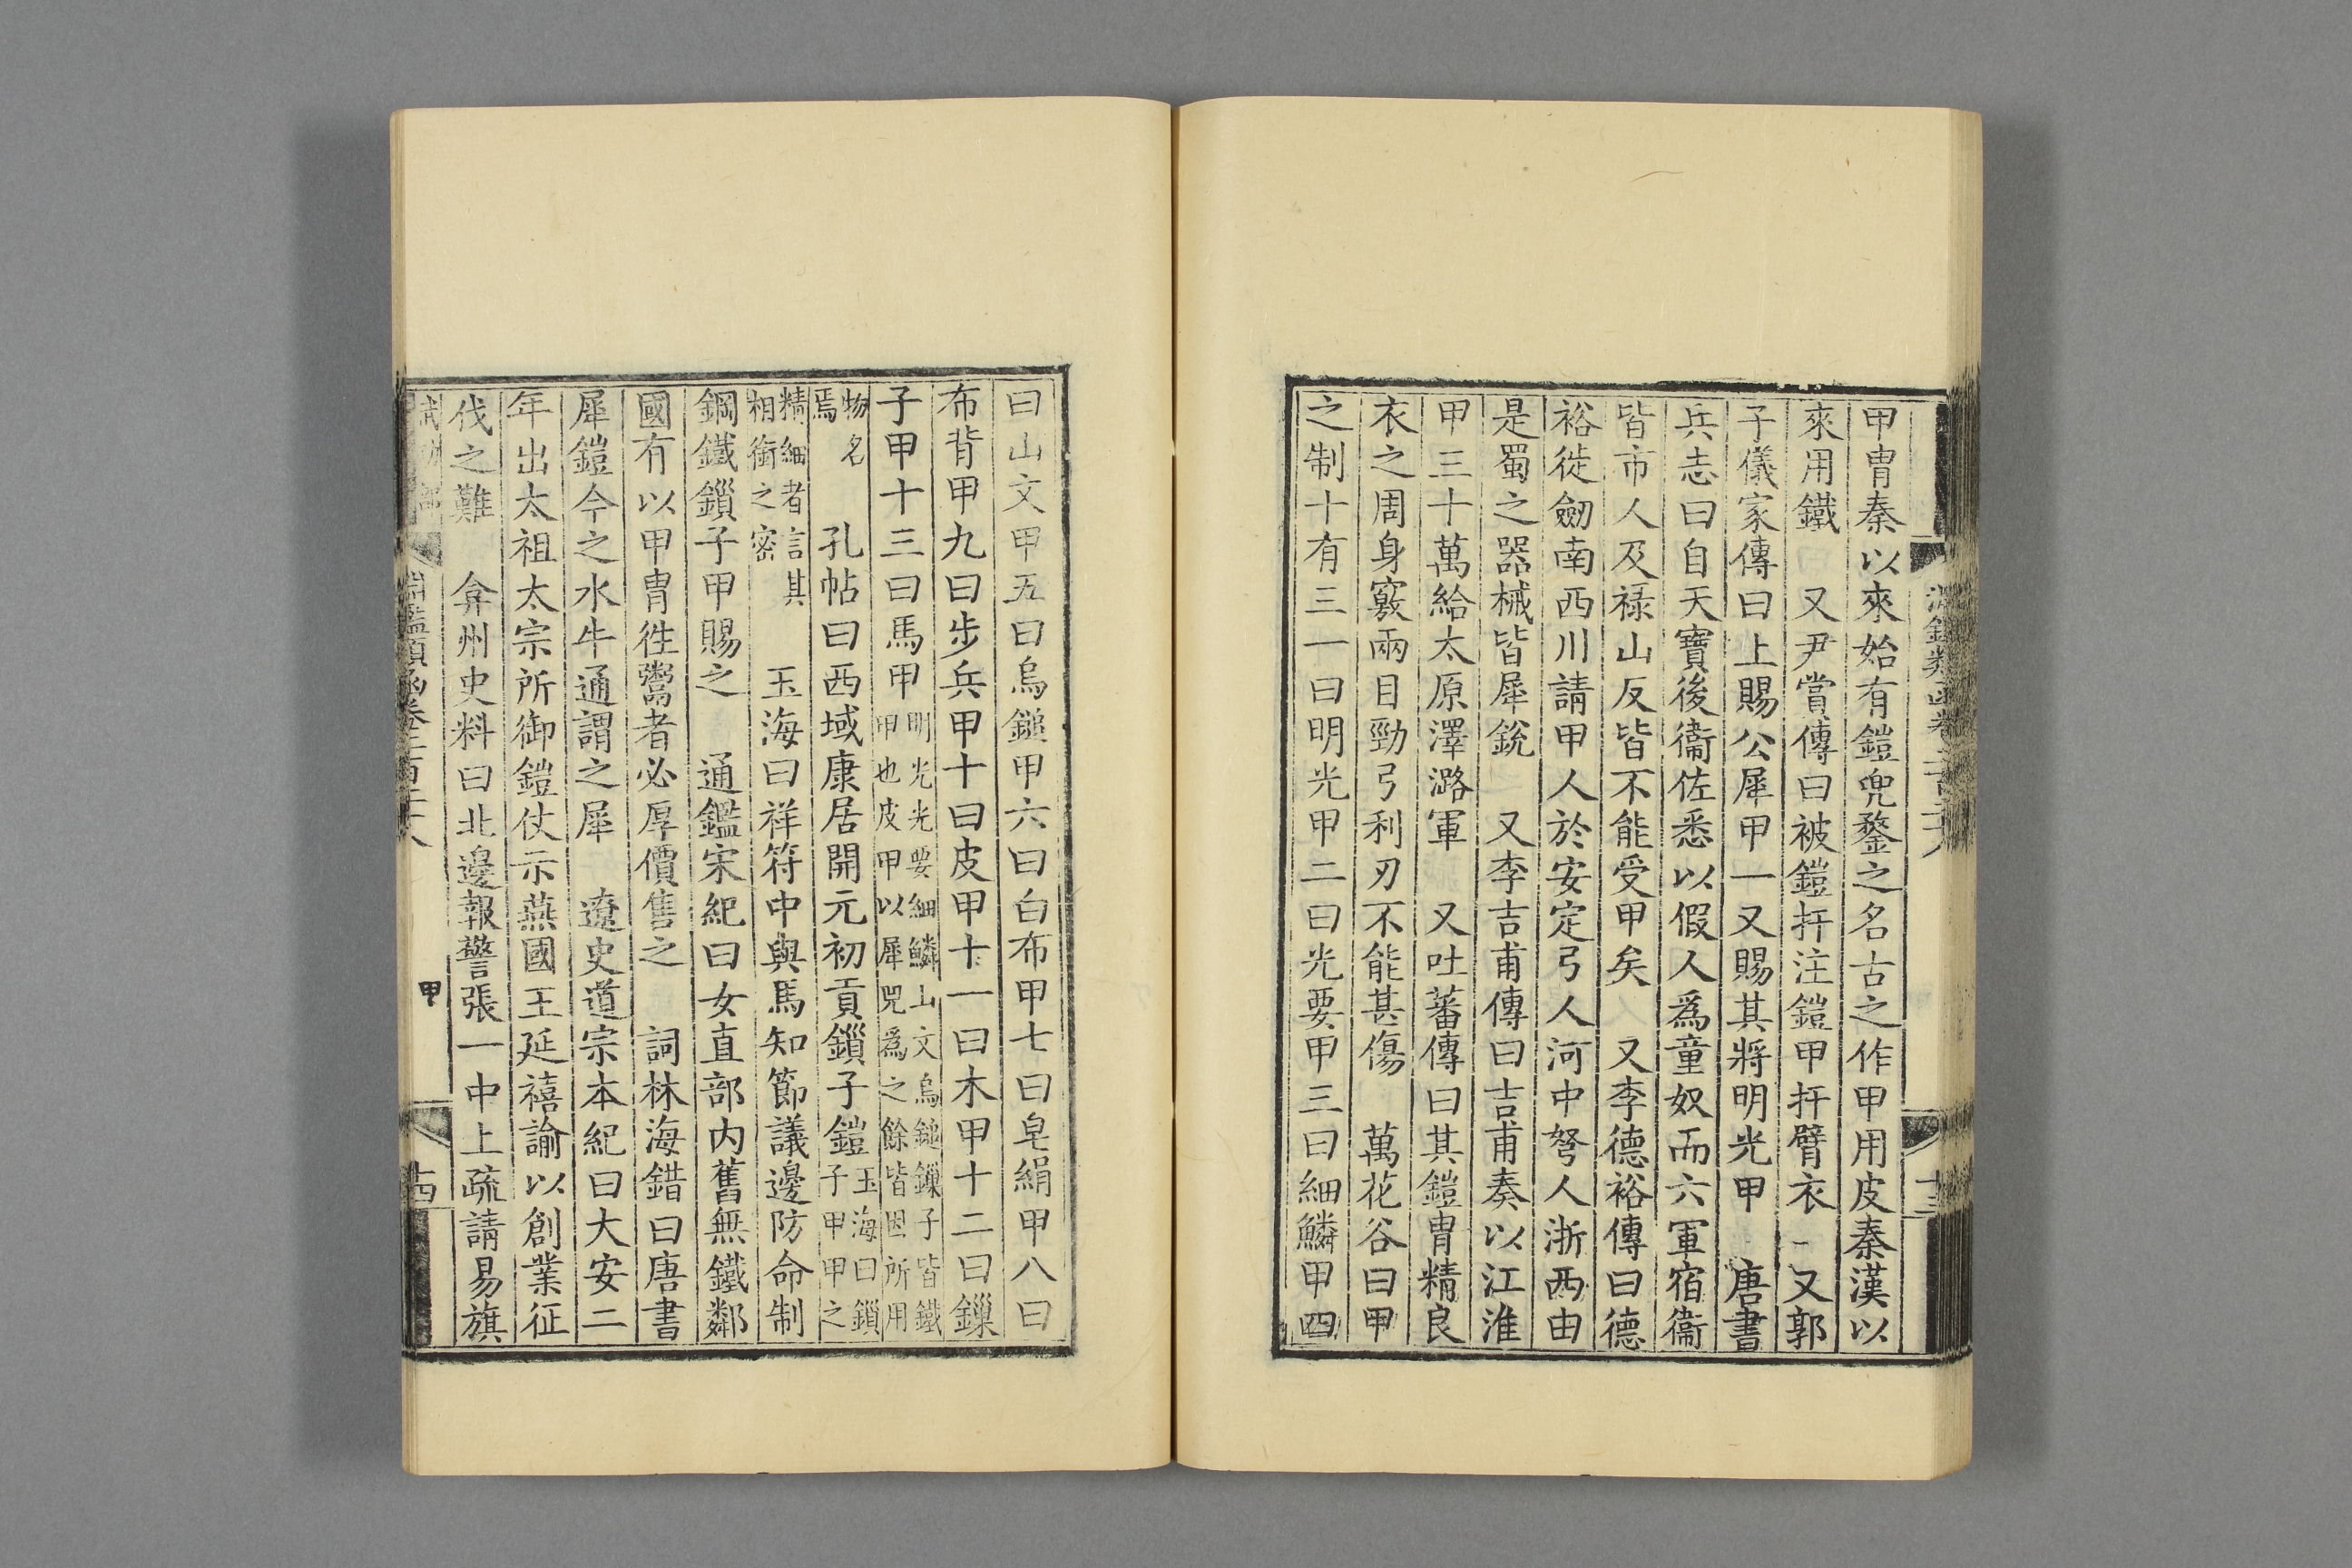 甲冑秦以來始有鎧兜鍪之名古之作甲用皮秦漢以
來用鐵　又尹賞傳曰被鎧扞注鎧甲扞臂衣　又郭
子儀家傳曰上賜公犀甲一又賜其將明光甲　唐書
兵志曰自天寶後衞佐悉以假人爲童奴而六軍宿衞
皆市人及祿山反皆不能受甲矣　又李德裕傳曰德
裕徙劒南西川請甲人於安定弓人河中弩人浙西由
是蜀之器械皆犀銳　又李吉甫傳曰吉甫奏以江淮
甲三十萬給太原澤潞軍　又吐蕃傳曰其鎧冑精良
衣之周身竅兩目勁弓利刃不能甚傷　萬花谷曰甲
之制十有三一曰明光甲二曰光要甲三曰細鱗甲四
曰山文甲五曰烏鎚甲六曰白布甲七曰皂絹甲八曰
布背甲九曰步兵甲十曰皮甲十一曰木甲十二曰鏁
子甲十三曰馬甲
明光光要細鱗山文烏鎚鏁子皆鐵
甲也皮甲以犀兕爲之餘皆因所用
物名
焉
孔帖曰西域康居開元初貢鎻子鎧
玉海曰鎖
子甲甲之
精細者言其
相銜之密
玉海曰祥符中與馬知節議邊防命制
鋼鐵鎻子甲賜之　通鑑宋紀曰女直部内舊無鐵鄰
國有以甲冑徃鬻者必厚價售之　詞林海錯曰唐書
犀鎧今之水牛通謂之犀　遼史道宗本紀曰大安二
年出太祖太宗所御鎧仗示燕國王延禧諭以創業征
伐之難　弇州史料曰北邊報警張一中上疏請易旗
甲